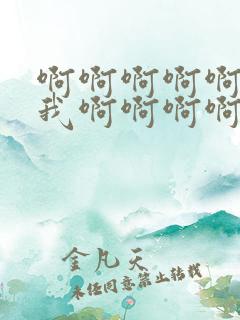 啊啊啊啊啊
我啊啊啊啊
金凡天
未经同意禁止转载